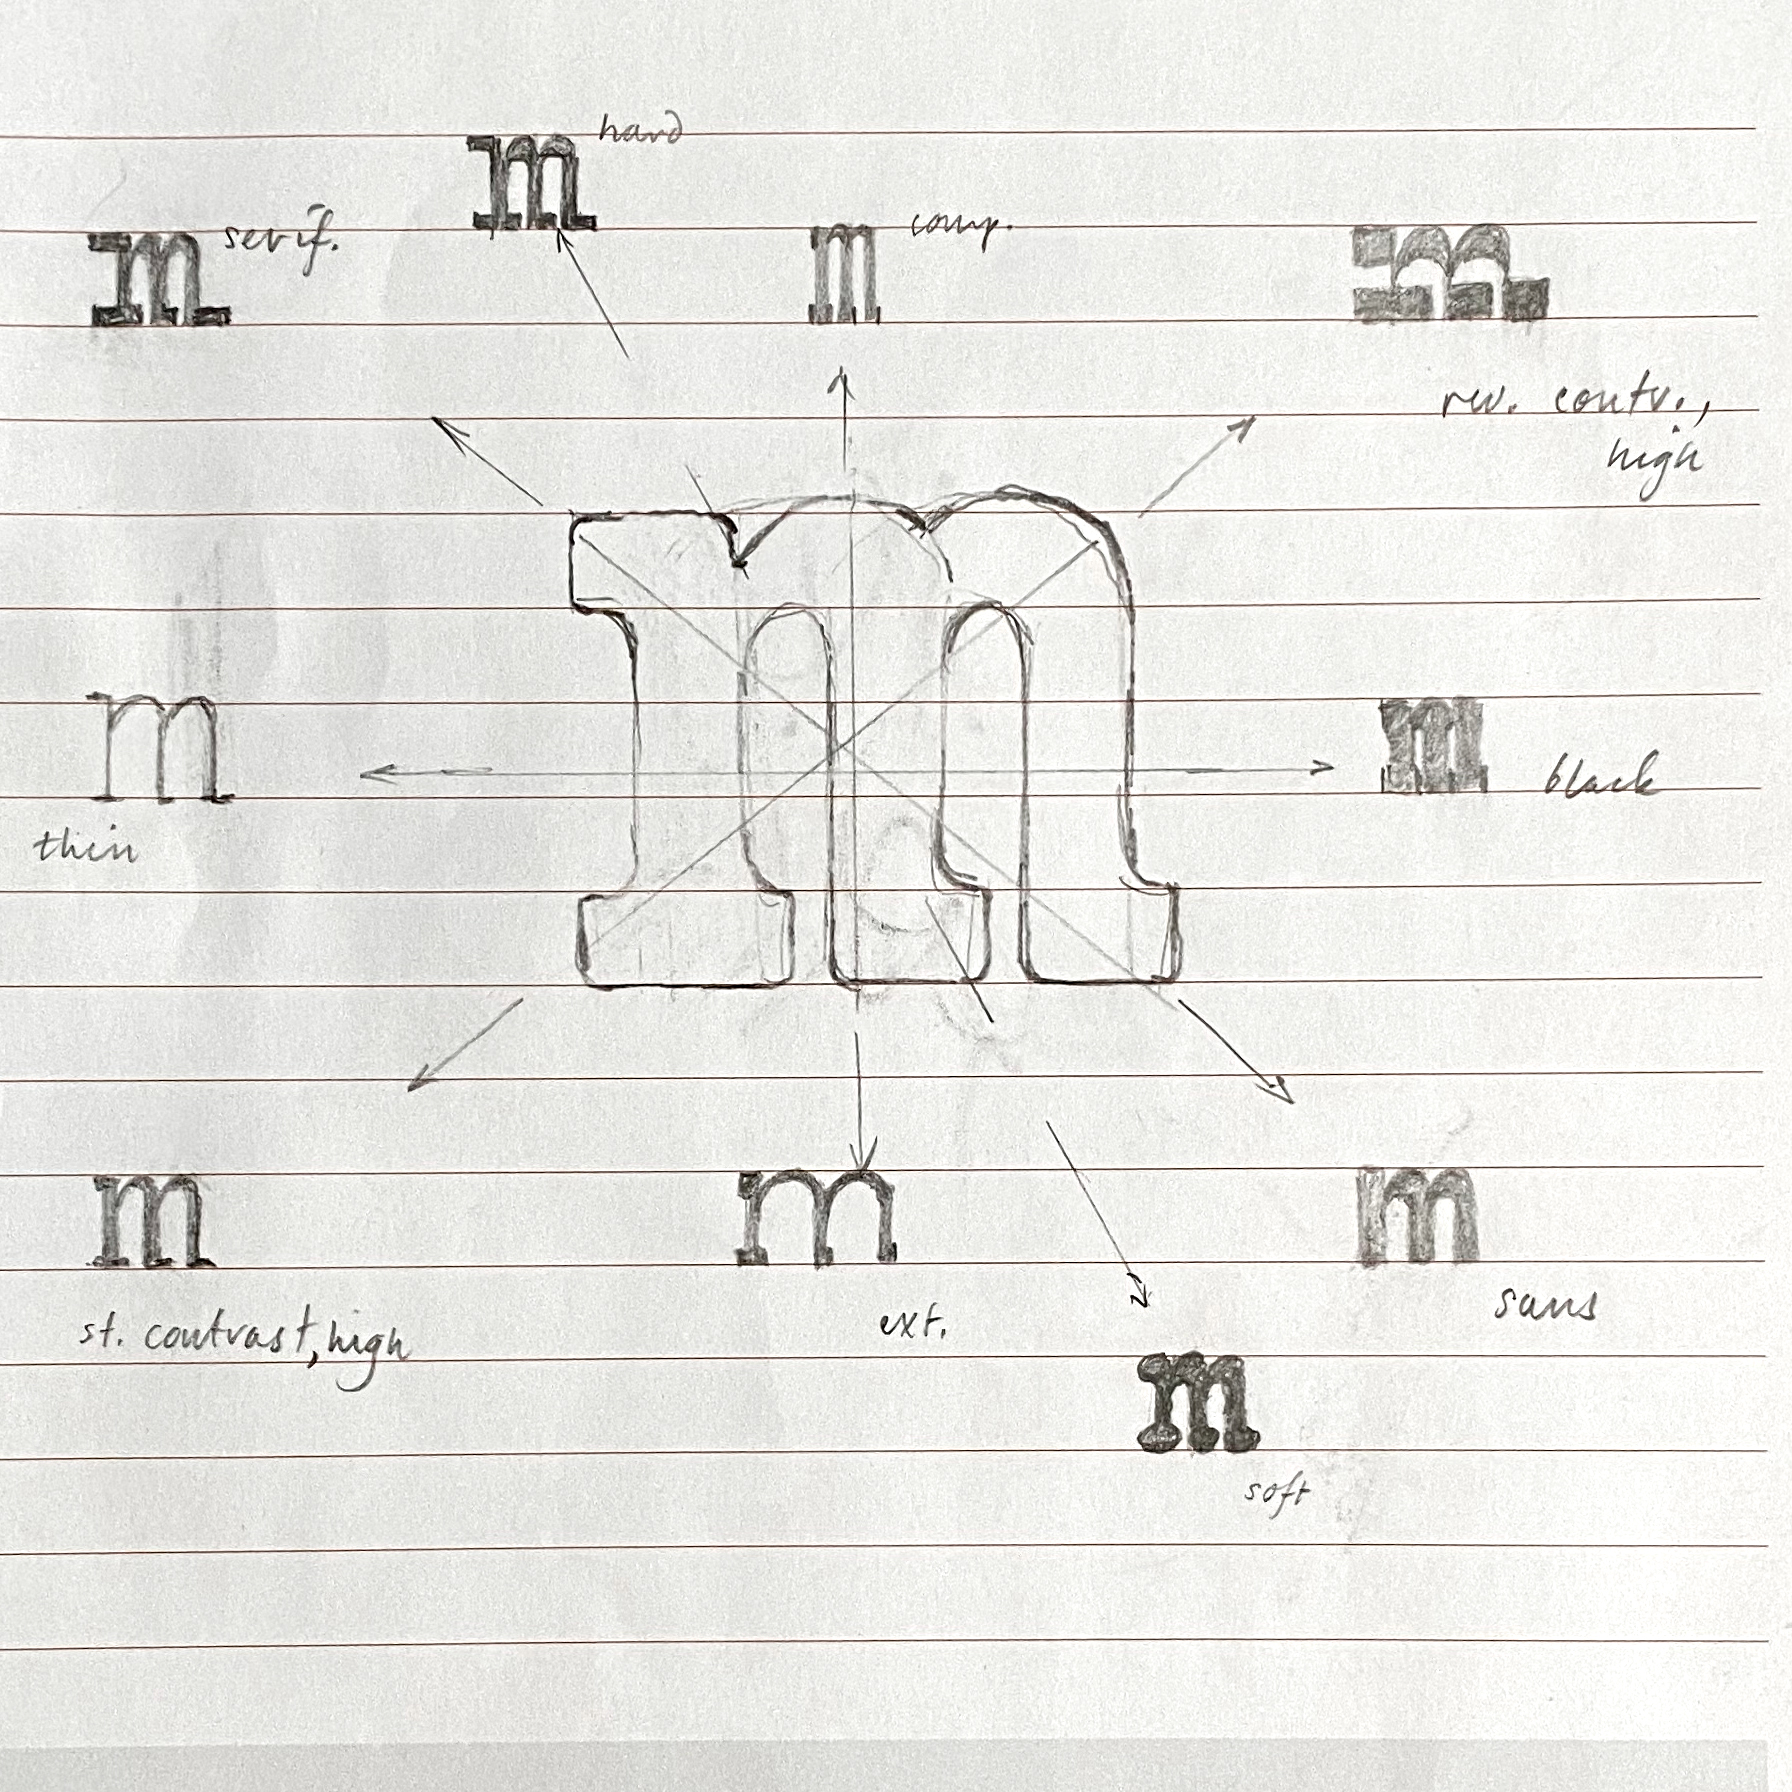 m hard
m serif.
m comp.
m
rev. contr.,
high
m
m
m black
thin
m
m
m
sans
st. contrast, high
ext.
m
soft